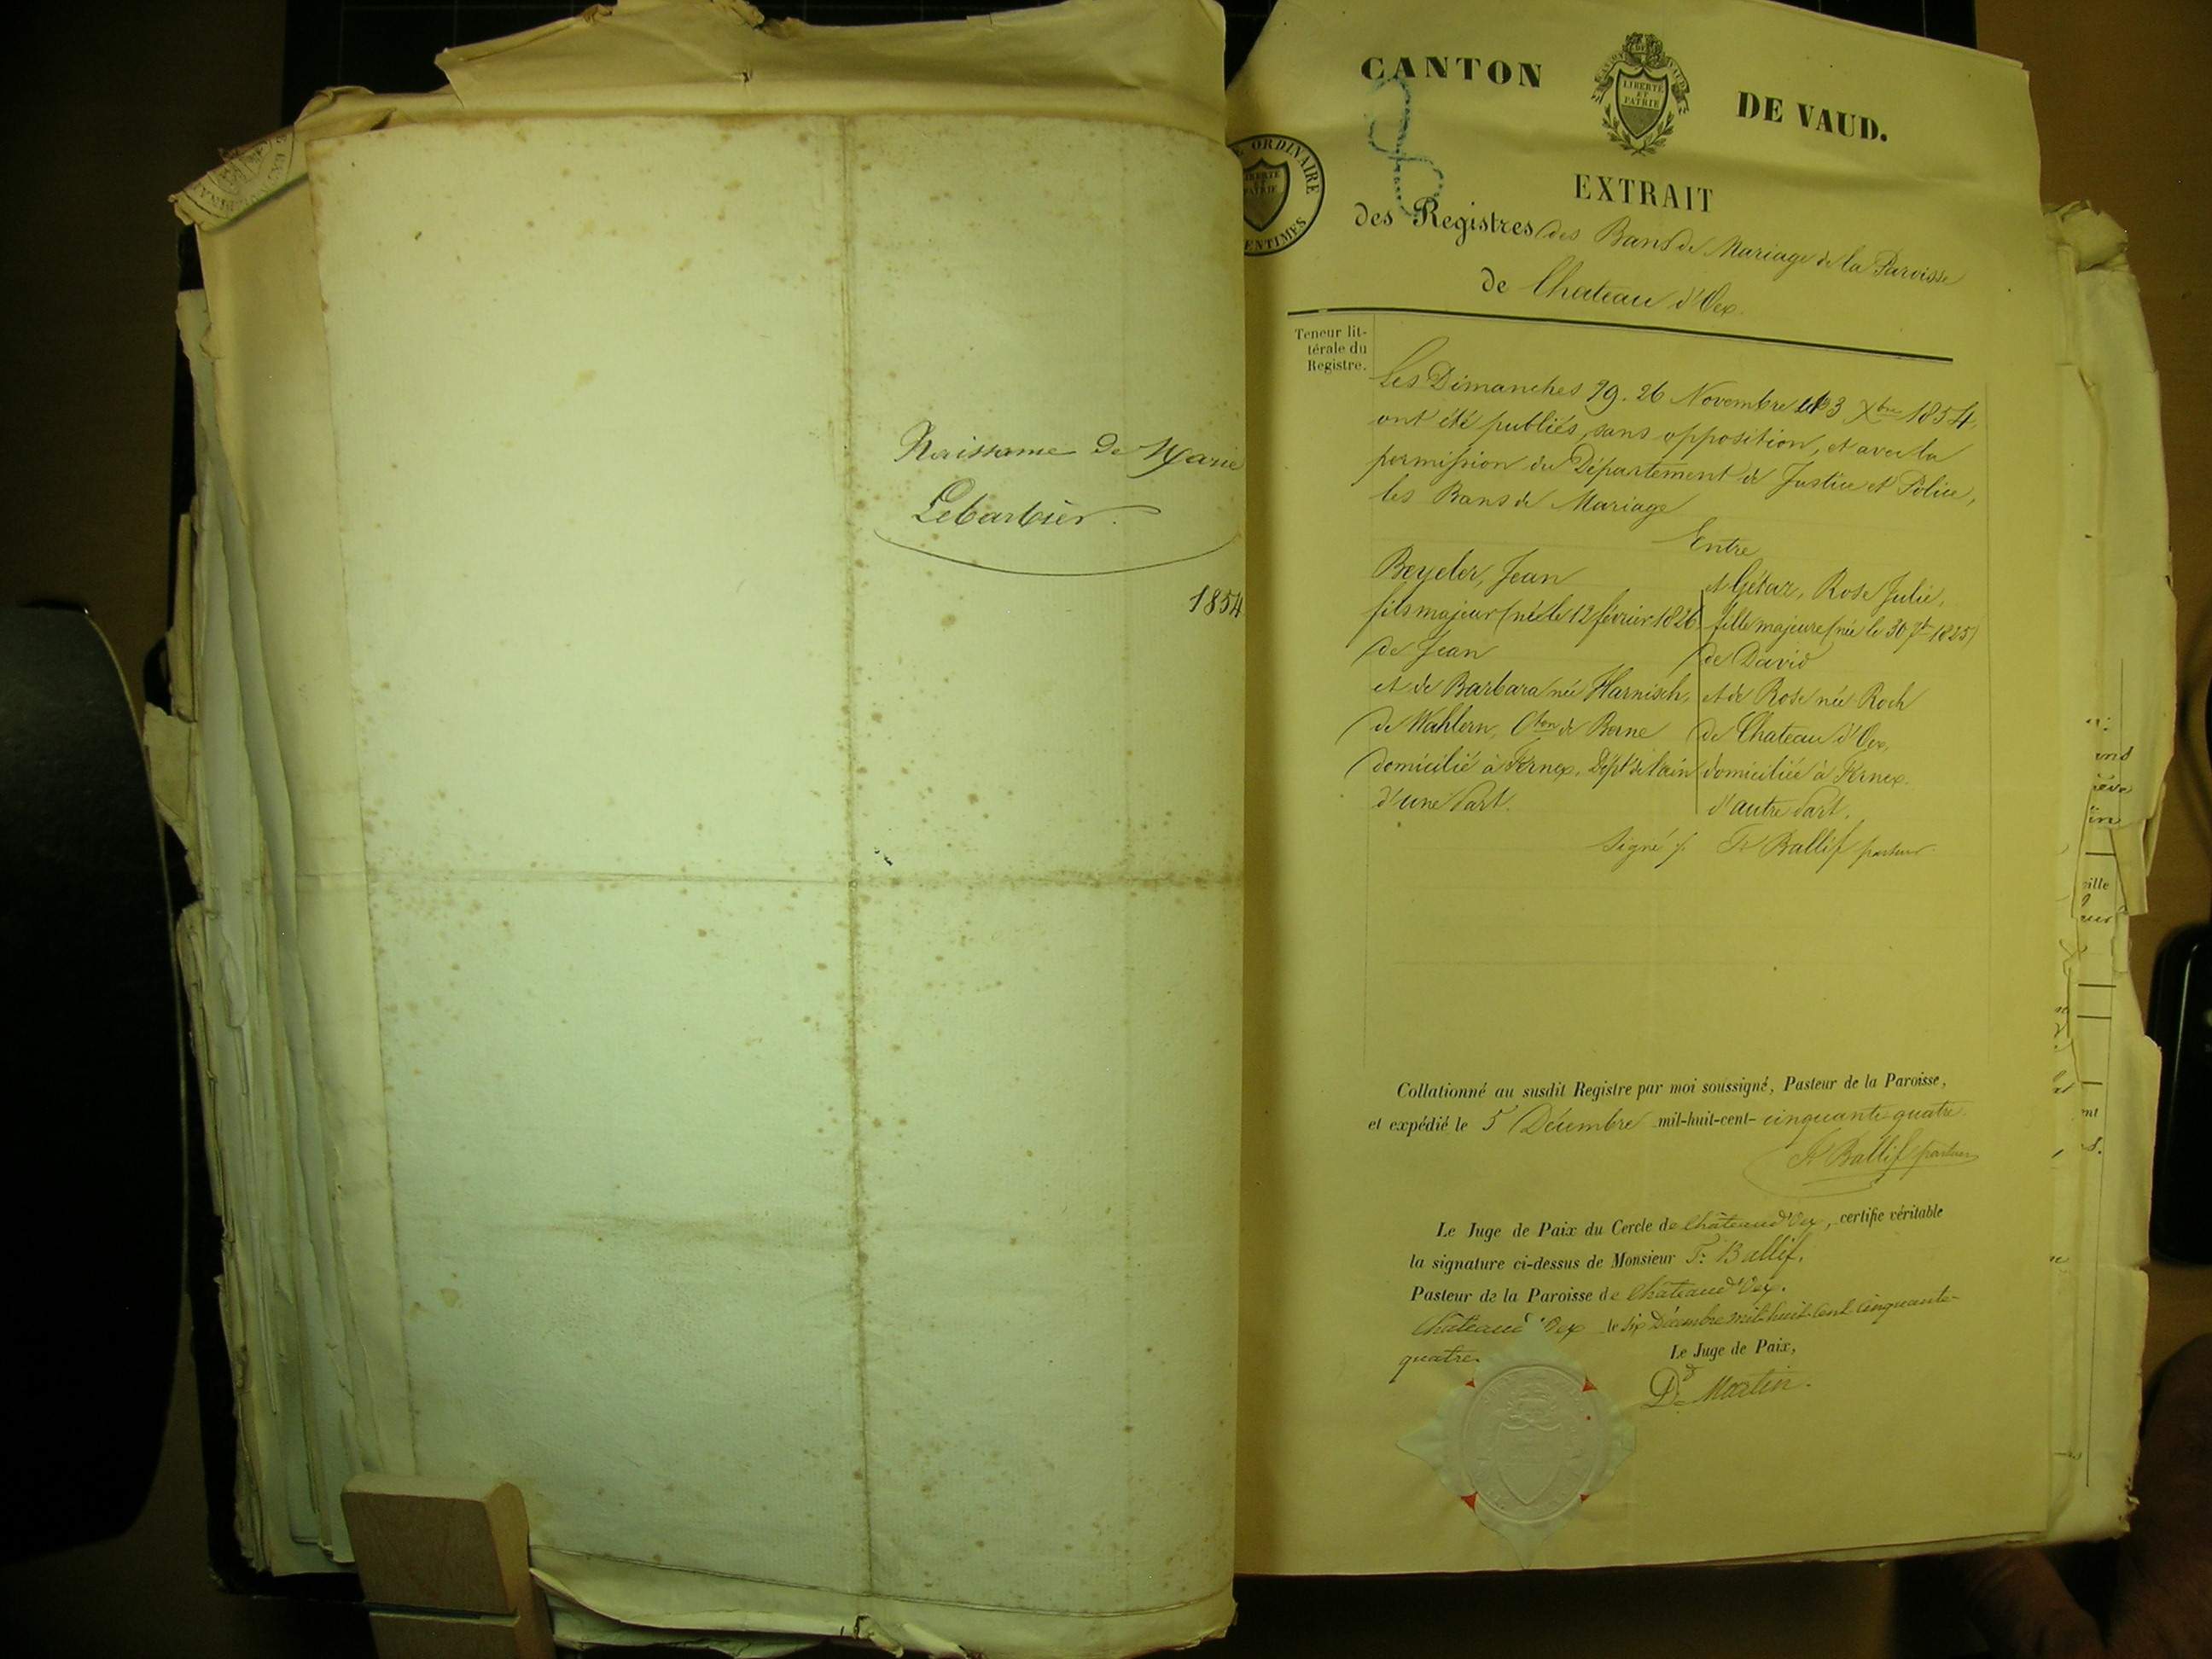 Naissance de Marie
Lebarbier.
1854
CANTON DE VAUD.
LIBERTÉ
ET
PATRIE
ORDINAIRE
LIBERTÉ
ET
PATRIE
CENTIMES
EXTRAIT
des Registres des Bans de Mariage de la Paroisse
de Chateau d'Oex
Teneur lit-
térale du
Registre.
Les Dimanches 19. 26 Novembre et 3 Xbre 1854,
ont été publiés, sans opposition, et avec la
permission du Département de Justice et Police,
les Bans de Mariage
Entre
Beyeler, Jean
fils majeur (né le 12 février 1826)
de Jean
et de Barbara née Harnisch,
de Wahlern, Cton de Berne
domicilié à Fernex, Dépt de l'ain
d'une part.
et Gétaz, Rose Julie,
fille majeure (née le 30 7bre 1825)
de David
et de Rose née Roch
de Chateau d'Oex,
domiciliée à Fernex.
d'autre part.
Signé Fs Ballif pasteur.
Collationné au susdit Registre par moi soussigné, Pasteur de la Paroisse,
et expédié le 5 Décembre mil-huit-cent- cinquante quatre.
Fs Ballif pasteur
Le Juge de Paix du Cercle de Château d'Oex, certifie véritable
la signature ci-dessus de Monsieur F: Ballif.
Pasteur de la Paroisse de Château d'Oex.
Château d'Oex le six Décembre mil huit cent cinquante-
quatre.
Le Juge de Paix,
Dd Martin.